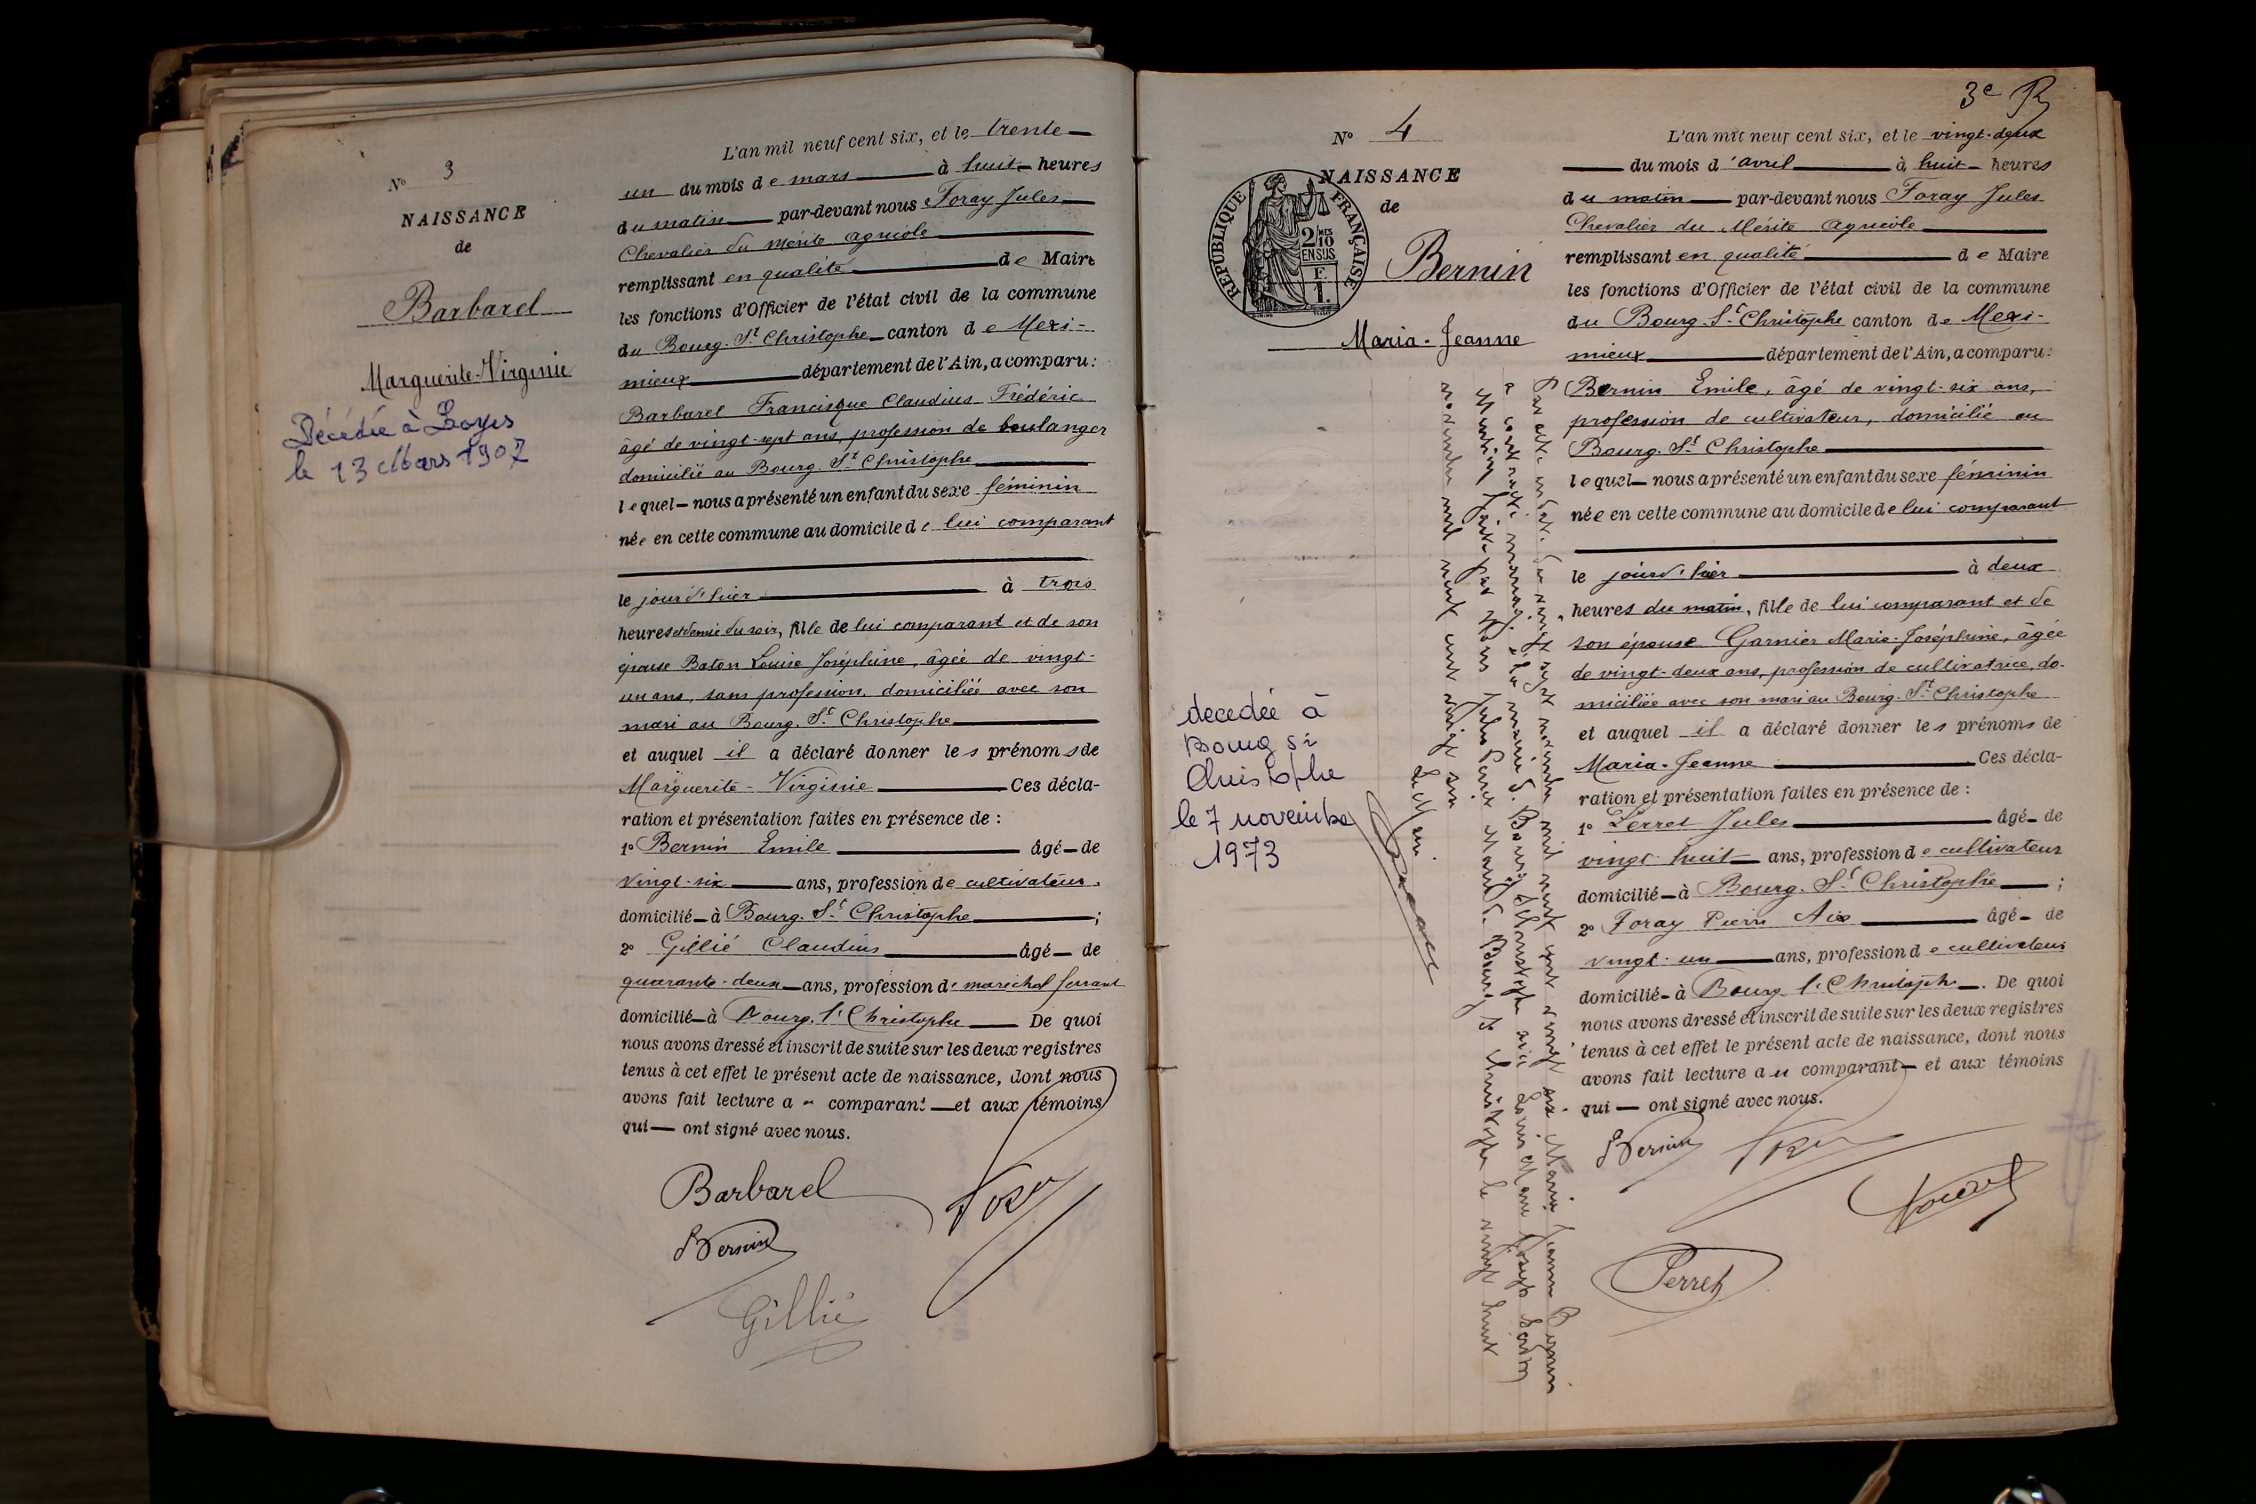 Nº 3
NAISSANCE
de
Barbarel
Marguerite-Virginie
Décédée à Loyes
le 13 Mars 1907
L'an mil neuf cent six, et le trente-
un du mois de mars à huit heures
du matin par-devant nous Foray Jules
Chevalier du Mérite agricole
remplissant en qualité de Maire
les fonctions d'Officier de l'état civil de la commune
du Bourg-St Christophe canton de Mexi-
mieux département de l'Ain, a comparu :
Barbarel Francisque Claudius Frédéric
âgé de vingt-sept ans, profession de boulanger
domicilié au Bourg-St Christophe
lequel nous a présenté un enfant du sexe féminin
née en cette commune au domicile de lui comparant
le jour d'hier à trois
heures et demie du soir, fille de lui comparant et de son
épouse Baton Louise Joséphine, âgée de vingt-
un ans, sans profession, domiciliée avec son
mari au Bourg-St Christophe
et auquel il a déclaré donner les prénoms de
Marguerite-Virginie Ces décla-
ration et présentation faites en présence de :
1º Bernin Emile âgé de
vingt-six ans, profession de cultivateur,
domicilié à Bourg-St Christophe ;
2º Gillié Claudius âgé de
quarante-deux ans, profession de maréchal ferrant
domicilié à Bourg-St Christophe De quoi
nous avons dressé et inscrit de suite sur les deux registres
tenus à cet effet le présent acte de naissance, dont nous
avons fait lecture au comparant et aux témoins
qui ont signé avec nous.
Barbarel
Foray
Bernin
Gillié
3e
Nº 4
NAISSANCE
de
RÉPUBLIQUE FRANÇAISE
2/10 MES
EN SUS
F.
1.
Bernin
Maria-Jeanne
decedée à
Bourg St
Christophe
le 7 novembre
1973
Par acte en date du vingt sept novembre mil neuf cent vingt six Maria Jeanne Bernin
a contracté mariage à la mairie de Bourg St Christophe avec
Mention faite par Nous Maire de Bourg St Christophe le vingt huit
novembre mil neuf cent vingt six
Le Maire
L'an mil neuf cent six, et le vingt-deux
du mois d'avril à huit heures
du matin par-devant nous Foray Jules
Chevalier du Mérite agricole
remplissant en qualité de Maire
les fonctions d'Officier de l'état civil de la commune
du Bourg-St Christophe canton de Mexi-
mieux département de l'Ain, a comparu :
Bernin Emile, âgé de vingt-six ans,
profession de cultivateur, domicilié au
Bourg-St Christophe
lequel nous a présenté un enfant du sexe féminin
née en cette commune au domicile de lui comparant
le jour d'hier à deux
heures du matin, fille de lui comparant et de
son épouse Garnier Marie-Joséphine, âgée
de vingt-deux ans, profession de cultivatrice, do-
miciliée avec son mari au Bourg-St Christophe
et auquel il a déclaré donner les prénoms de
Maria-Jeanne Ces décla-
ration et présentation faites en présence de :
1º Perret Jules âgé de
vingt-huit ans, profession de cultivateur
domicilié à Bourg-St Christophe ;
2º Foray Pierre Aix âgé de
vingt-un ans, profession de cultivateur
domicilié à Bourg-St Christophe. De quoi
nous avons dressé et inscrit de suite sur les deux registres
tenus à cet effet le présent acte de naissance, dont nous
avons fait lecture au comparant et aux témoins
qui ont signé avec nous.
Bernin
Foray
Perret